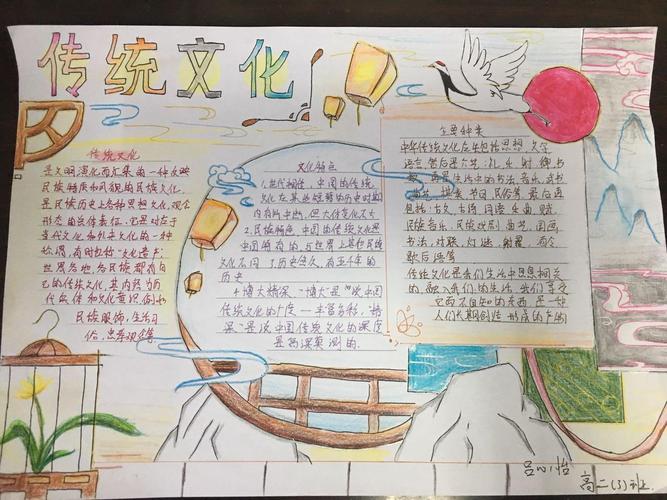 传统文化
传统文化
是文明演化而汇集的一种反映
民族特质和风貌的民族文化,
是民族历史上各种思想文化、观念
形态的总体表征。它是对应于
当代文化和外来文化的一种
称谓,有时也称"文化遗产"
世界各地,各民族都有自
己的传统文化,其内容为历
民族服饰,生活习
俗,忠孝观念等
文化特点
1.世代相传,中国的传统
文化在某些短暂的历史时期
内有所中断,但大体变化不大
2.民族特色,中国的传统文化是
中国特有的,与世界上其他民族
文化不同 3.历史悠久,有五千年的
历史
4.博大精深,"博大"是"说中国
传统文化的广度——丰富多彩,"精
深"是说中国传统文化的深度
是高深莫测的。
主要种类
中华传统文化应包括思想、文字
语言,管后是六艺:礼、乐、射、御、书
数,再是生活中的书法、音乐、武术
曲艺、棋类、节日、民俗等,最后再
包括:古文、古诗、词语、乐曲、赋、
民族音乐、民族戏剧、曲艺、国画、
书法、对联、灯谜、射覆、酒令
歇后语等
传统文化是我们生活中息息相关
的,融入我们的生活,我们享受
它而不自知的东西,是一种
人们长期创造形成的产物
高二(3)班